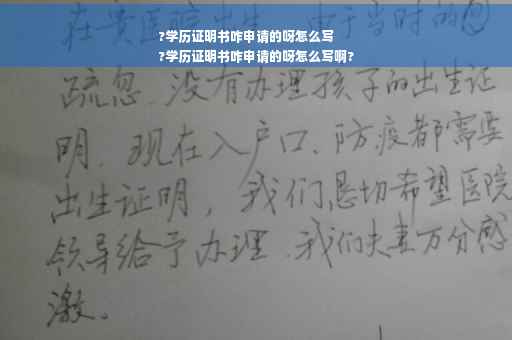 ?学历证明书咋申请的呀怎么写
?学历证明书咋申请的呀怎么写啊?
在贵医院出生,由于当时的
疏忽.没有办理孩子的出生证
明.现在入户口、防疫都需要
出生证明,我们恳切希望医院
领导给予办理.我们夫妻万分感
激。